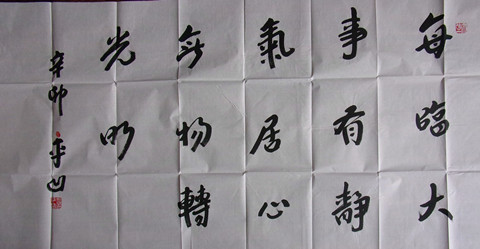 每臨大
事有靜
氣居心
無物轉
光明
辛卯 平凹